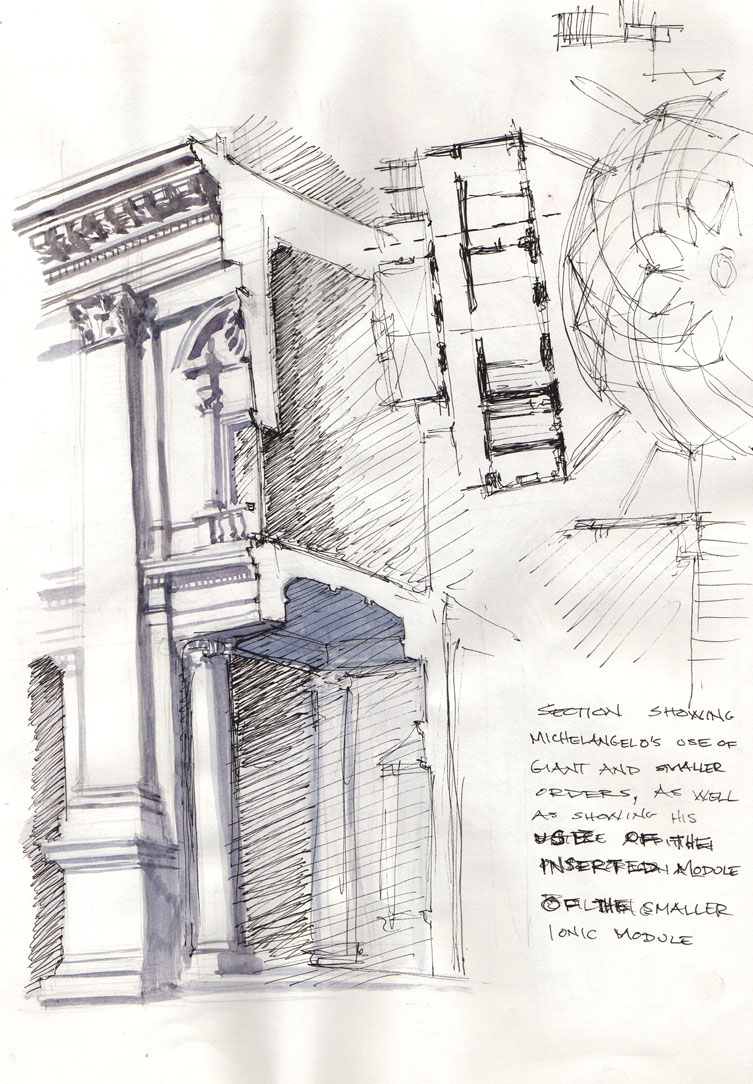 SECTION SHOWING
MICHELANGELO'S USE OF
GIANT AND SMALLER
ORDERS, AS WELL
AS SHOWING HIS
USE OF THE
INSERTED MODULE
OF THE SMALLER
IONIC MODULE